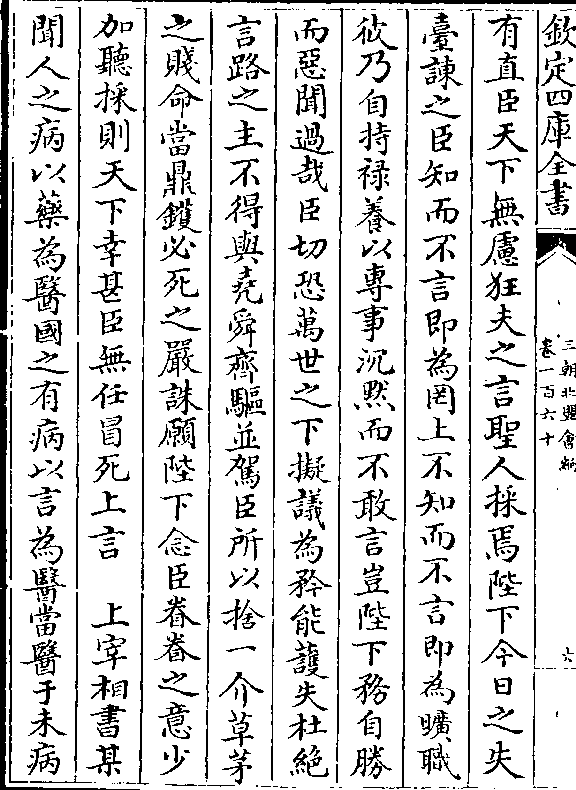 欽定四庫全書
三朝北盟會編
卷一百六十
六
有直臣天下無慮狂夫之言聖人採焉陛下今日之失
臺諫之臣知而不言即為罔上不知而不言即為曠職
彼乃自持禄養以專事沉默而不敢言豈陛下務自勝
而惡聞過哉臣切恐萬世之下擬議為矜能護失杜絶
言路之主不得與堯舜齊驅並駕臣所以捨一介草茅
之賤命當鼎鑊必死之嚴誅願陛下念臣眷眷之意少
加聽採則天下幸甚臣無任冒死上言　上宰相書某
聞人之病以藥為醫國之有病以言為醫當醫于未病